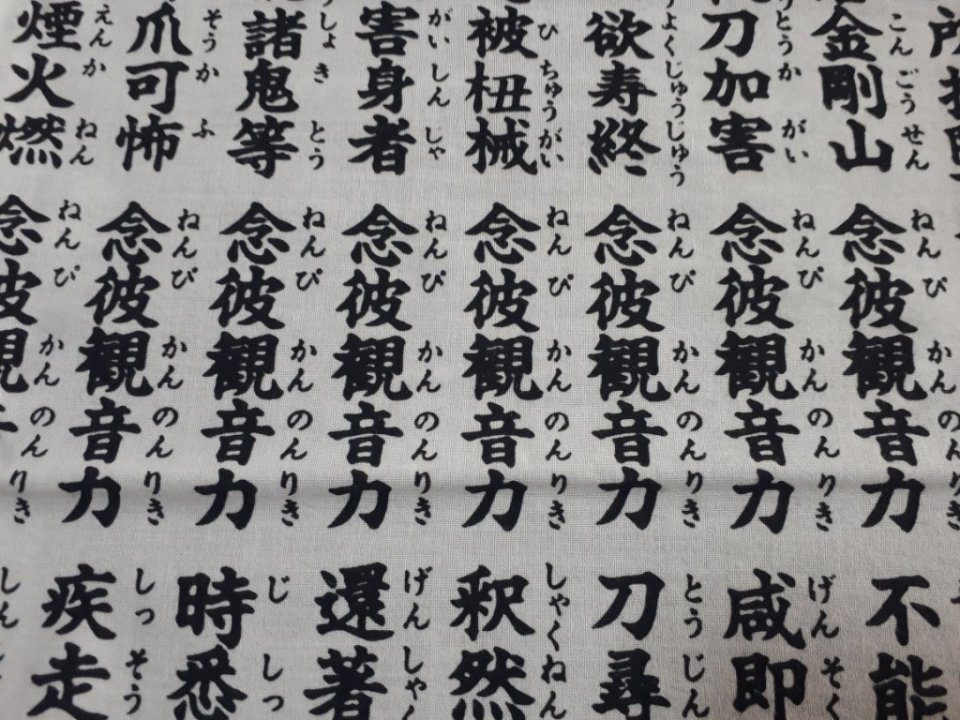 金剛山 念彼観音力 不能
こんごうせん ねんぴかんのんりき
刀加害 念彼観音力 咸即
とうかがい ねんぴかんのんりき げんそく
欲寿終 念彼観音力 刀尋
よくじゅうじゅう ねんぴかんのんりき とうじん
被杻械 念彼観音力 釈然
ひちゅうがい ねんぴかんのんりき しゃくねん
害身者 念彼観音力 還著
がいしんしゃ ねんぴかんのんりき げんしゃく
諸鬼等 念彼観音力 時悉
しょきとう ねんぴかんのんりき じしつ
爪可怖 念彼観音力 疾走
そうかふ ねんぴかんのんりき しっそう
煙火燃 念彼観
えんかねん ねんぴかんのんりき